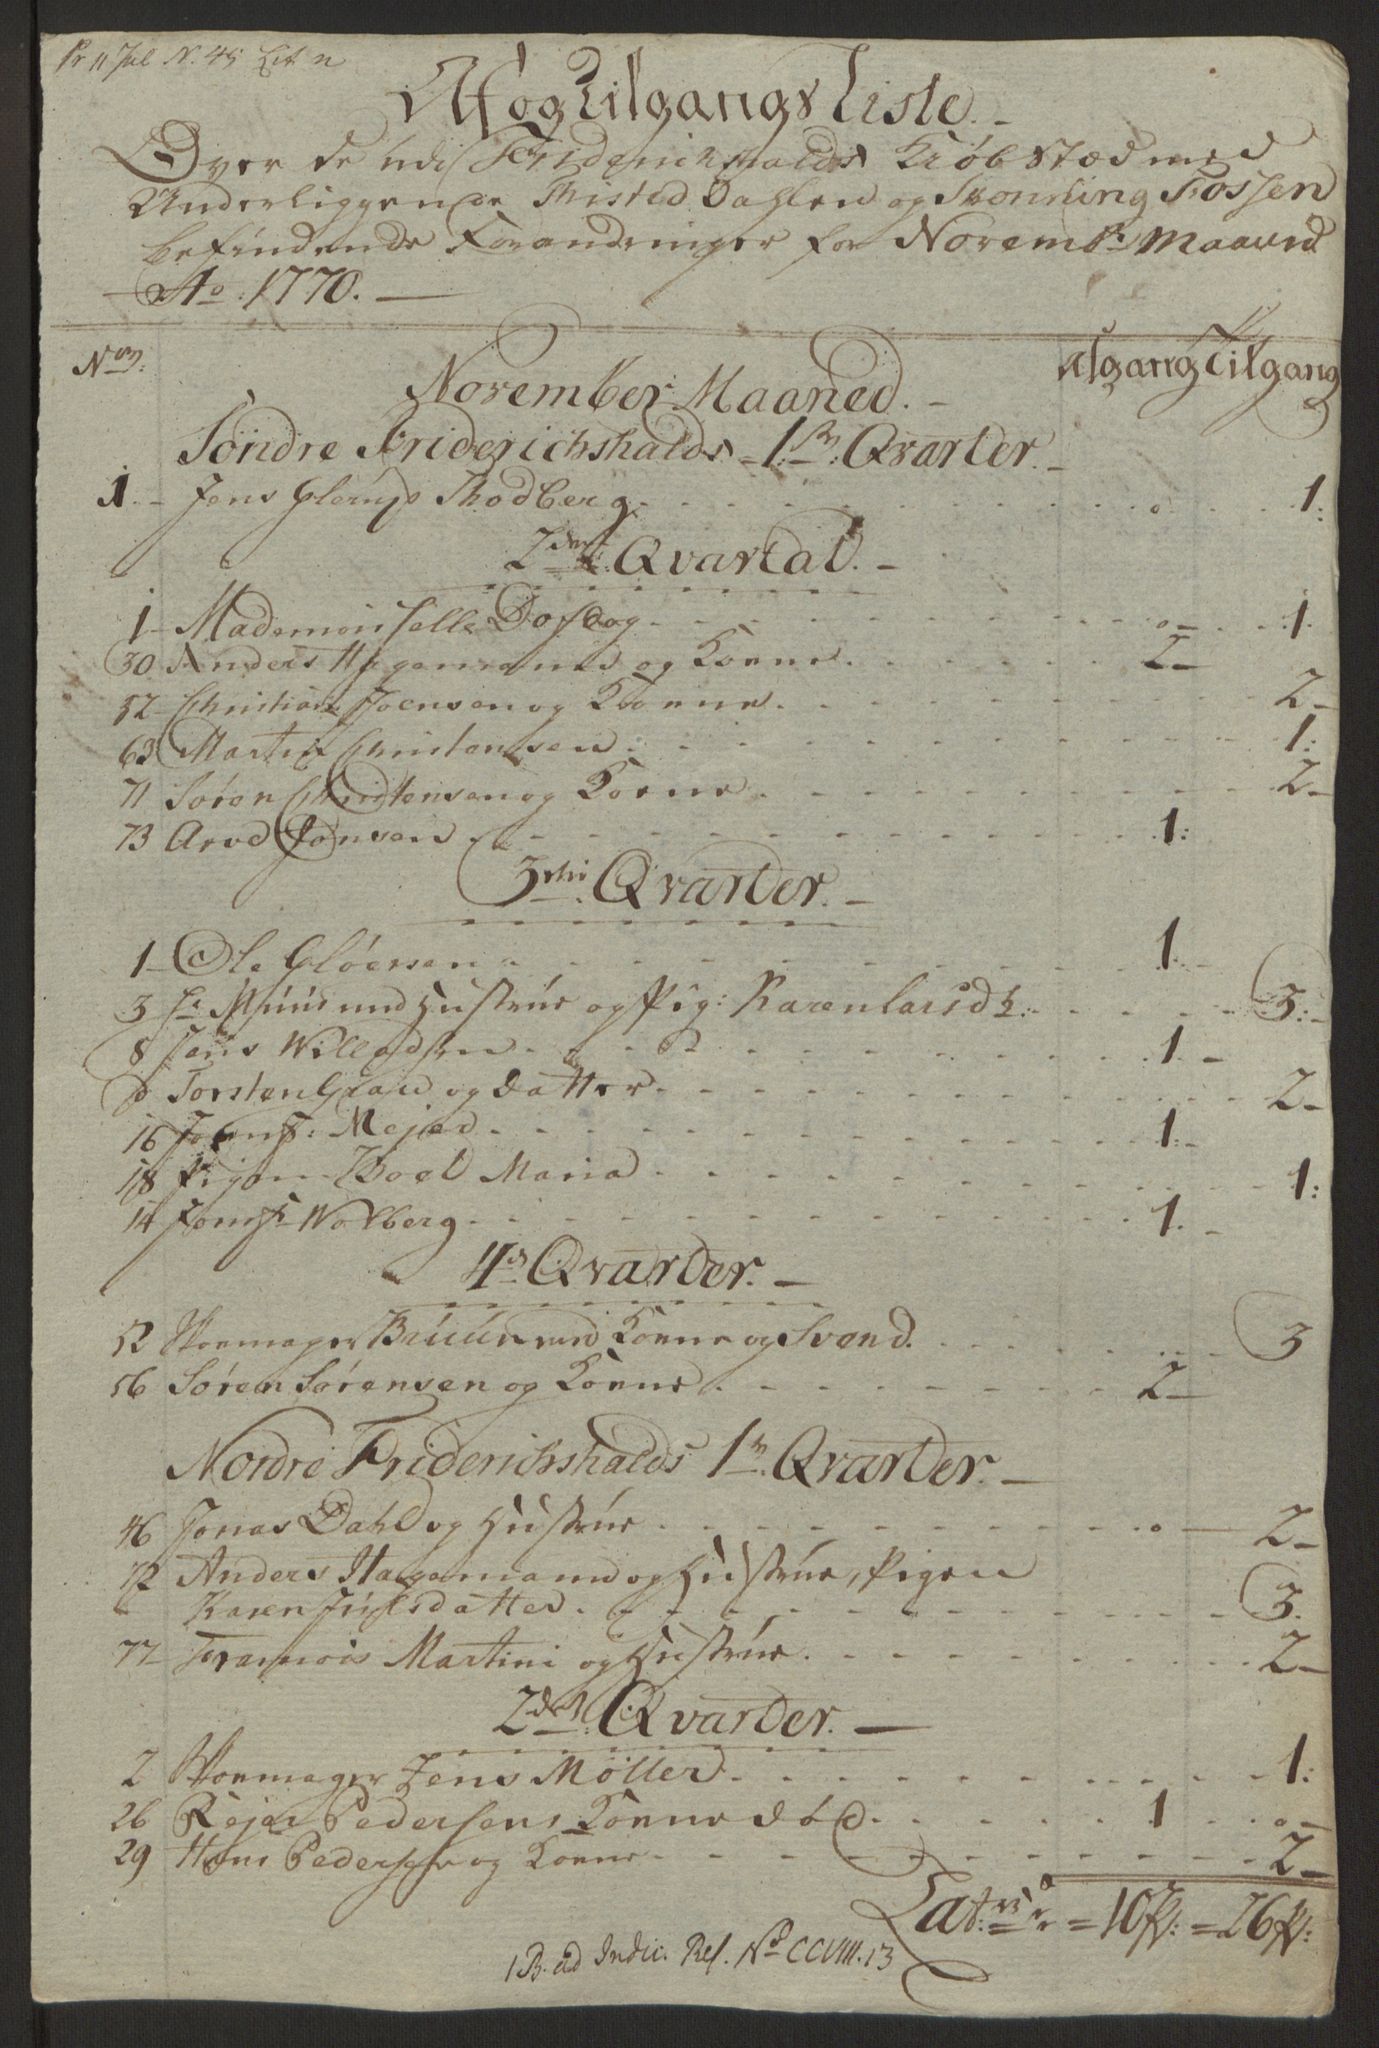 Pr 11 Jul N. 45 Lit n
Af og Tilgangs Liste.
Over de udi Friderichshalds Kiöbstæd med
Underliggende Thisted Dahlen og Fossen
befindende Forandringer for Novembr: Maaned
Ao. 1770.
Nom: Afgang Tilgang
November Maaned.
Söndre Friderichshalds 1ste: Qvarter.
1 Jens Glerup Thodberg 0 1:
2det: Qvartal.
1 Mademoiselle 0 1.
30 Anders Hagemand og Konne. 2
52 Christian Joensen og Konne. 2
63 Martin Christensen. 1:
71 Søren Christensen og Konne. 2
73 Arve Jonsen. 1:
3die: Qvarter.
1 Ole Glöersen 1.
3 Hr Muus med Hustrue og Pig: Karen Larsd: 3:
8 Jens Willadsen. 1.
Torsten Graae og Datter. 2
16 Jomf: Mejer. 1:
18 Pigen Boel Maria 1:
14 Jomfr Wolberg. 1.
4de: Qvarter.
52 Bruun med Konne og Svend. 3
56 Søren Sörensen og Konne. 2
Nordre Friderichshalds 1ste. Qvarter.
46 Jonas Dahl og Hustrue. 0 2
72 Anders Hagemand og Hustrue, Pigen
Karen Juulsdatter. 3.
77 Francois Martini og Hustrue. 2
2den: Qvarter.
2 Jens Möller. 1:
26 Rejer Pedersens Konne död. 1 0
29 Hans Pedersen og Konne. 2
Lat: = 10 ps: = 26 ps:
1 B. ad Indic. Ref. No CCVIII. 13